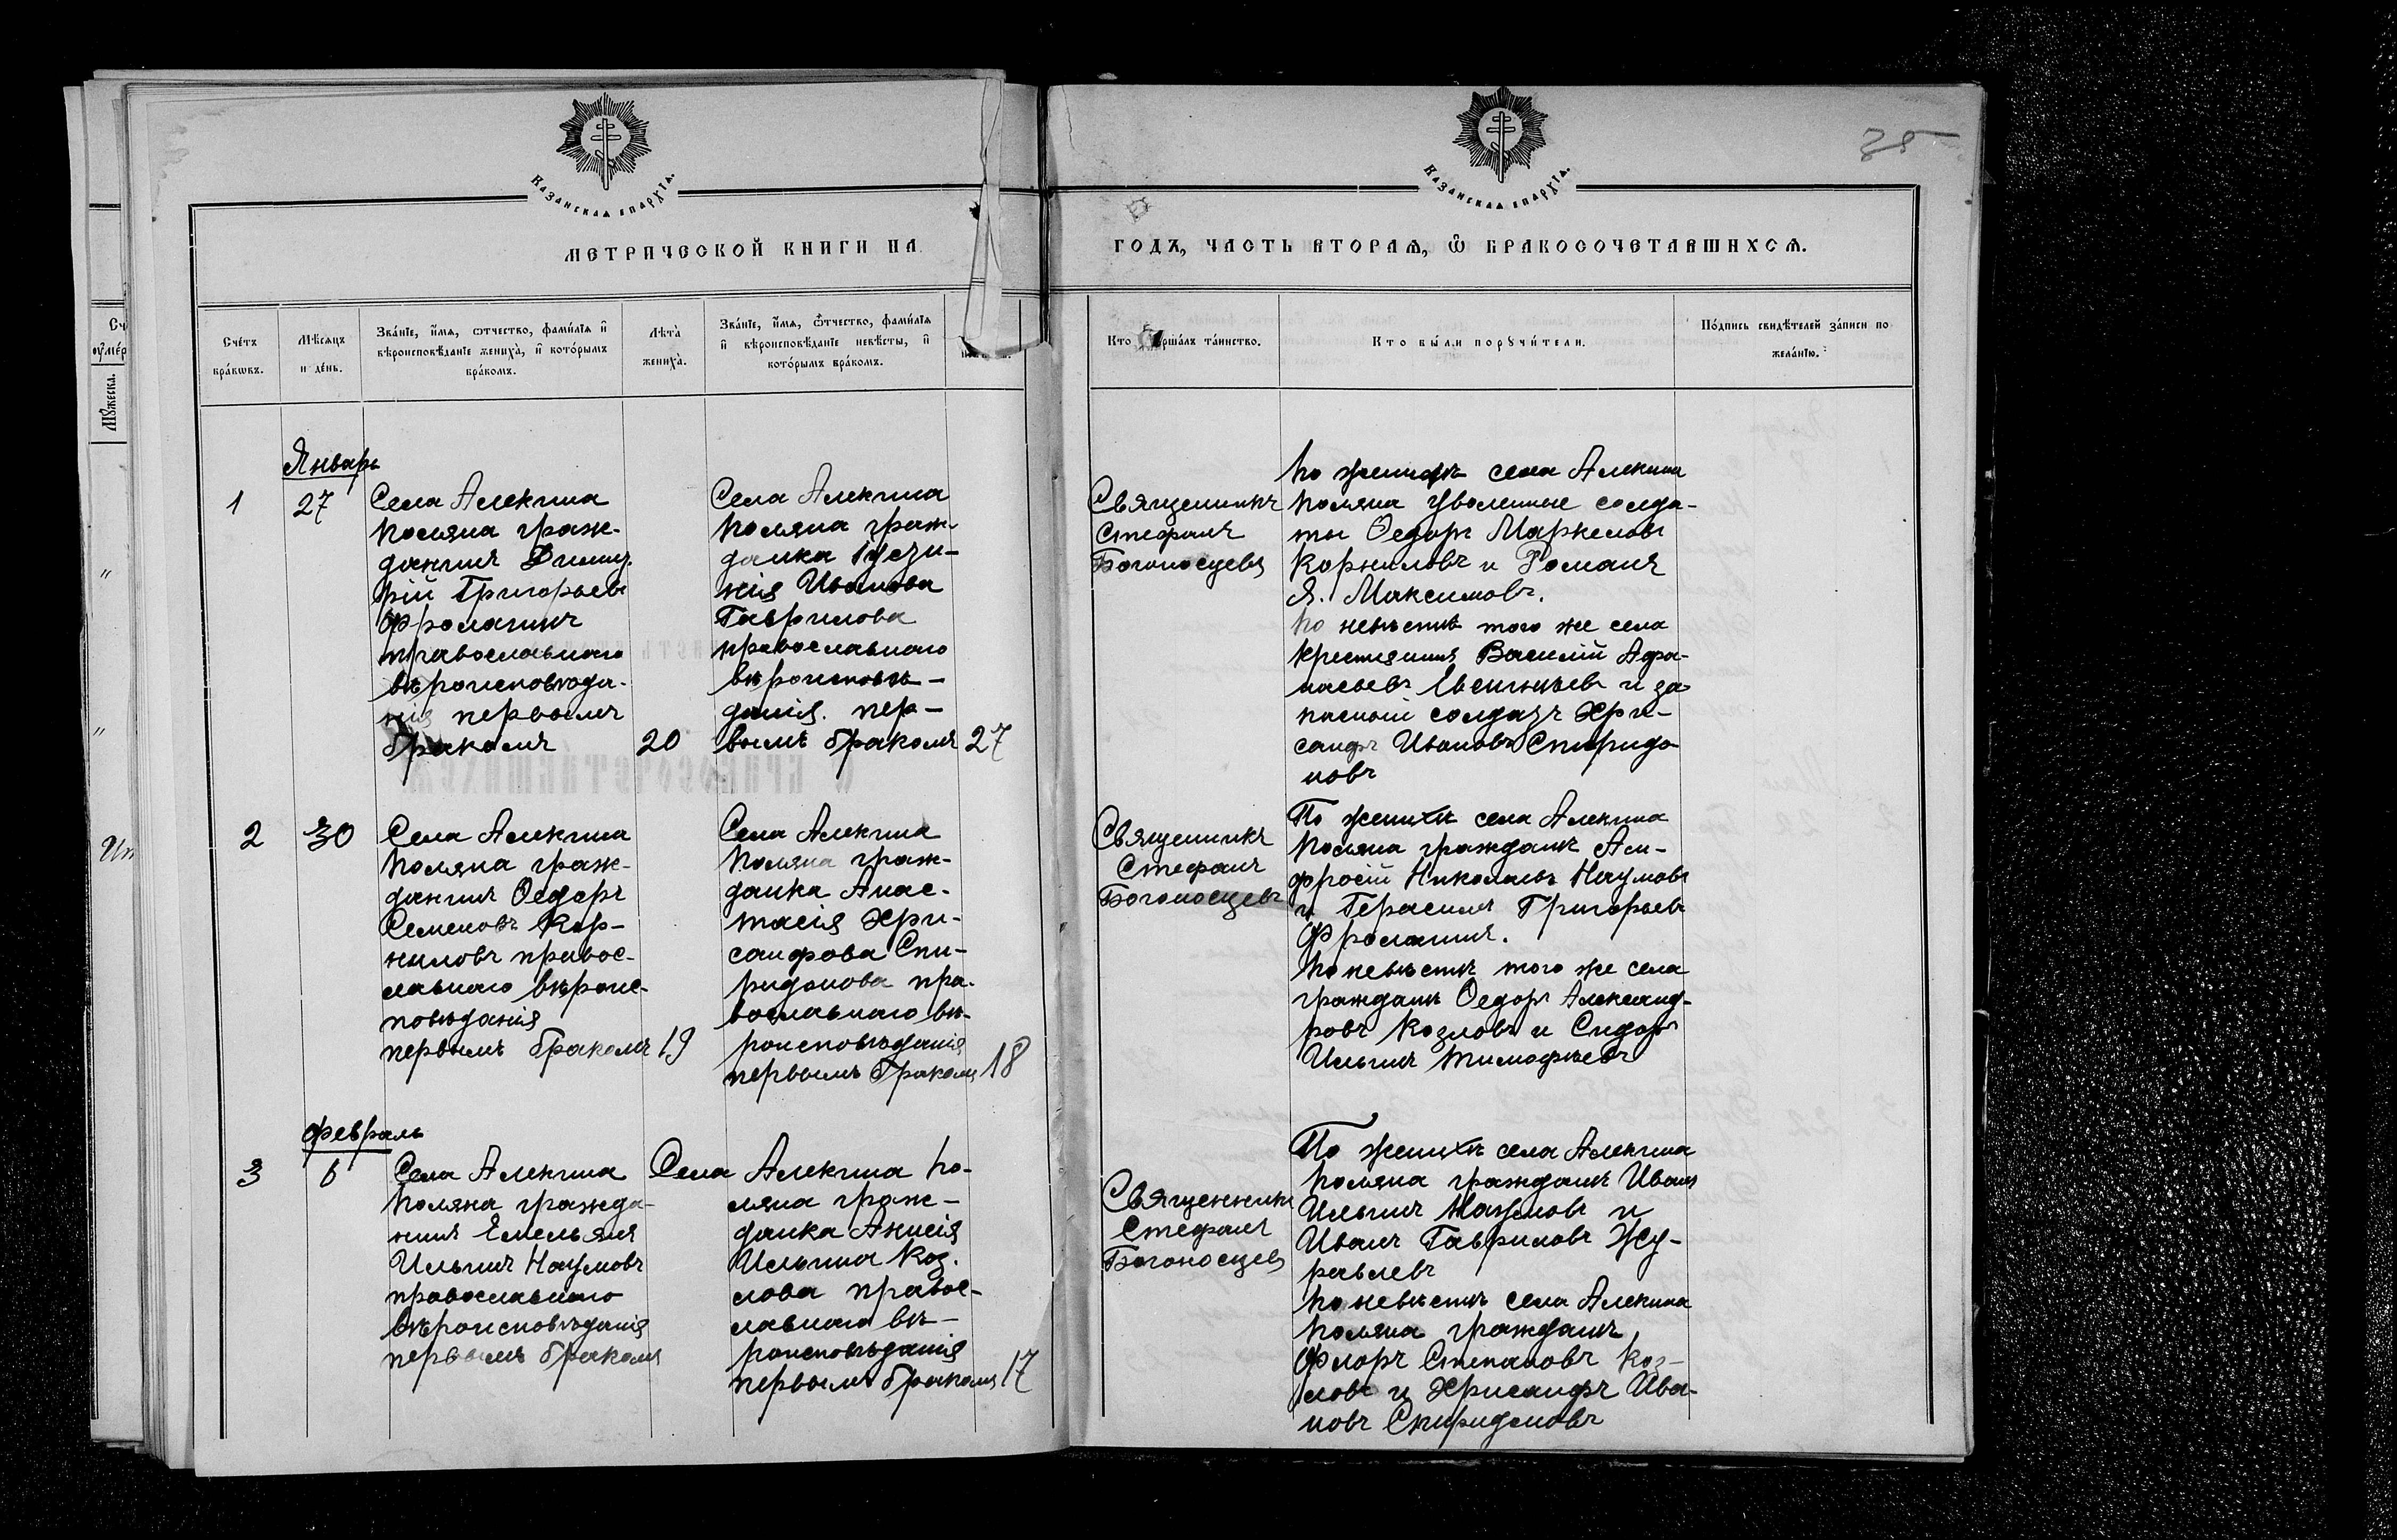 Казанская епархїа.
Казанская епархїа.
35
МЕТРИЧЕСКОЙ КНИГИ НА
ГОДЪ, ЧАСТЬ ВТОРАѦ, Ѿ БРАКОСОЧЕТАВШИХСѦ.
Сче́тъ
бра́кѡвъ.
Мѣ́сѧцъ
и де́нь.
Зва́нїе, и́мѧ, ѻтчество, фами́лїѧ и
вѣроисповѣ́данїе жениха̀, и кото́рымъ
бра́комъ.
Лѣта̀
жениха̀.
Зва́нїе, и́мѧ, ѻтчество, фами́лїѧ
и вѣроисповѣ́данїе невѣ́сты, и
кото́рымъ бра́комъ.
Кто
ршалъ та́инство.
Кто бы́ли порꙋчи́тели.
По́дпись свидѣ́телей за́писи по
жела́нїю.
Январь
1
27
Села Алекина
Поляна граж-
данинъ Димит-
рій Григорьевъ
Фролагинъ
православнаго
вѣроисповѣда-
нія первымъ
бракомъ
20
Села Алекина
Поляна граж-
данка
Иванова
Гаврилова
православнаго
вѣроисповѣ-
данія. пер-
вымъ бракомъ
27
Священникъ
Стефанъ
Богоносцевъ
По женихѣ села Алекина
Поляна уволенные солда-
ты Ѳедоръ Маркеловъ
Корниловъ и Романъ
Я. Максимовъ.
По невѣстѣ того же села
крестьянинъ Василій Афа-
насьевъ Евсигнѣевъ и за-
пасной солдатъ Хри-
санфъ Ивановъ Спиридо-
новъ
2
30
Села Алекина
Поляна граж-
данинъ Ѳедоръ
Семеновъ Кор-
ниловъ правос-
лавнаго вѣроис-
повѣданія
первымъ бракомъ
19
Села Алекина
Поляна граж-
данка Анас-
тасія Хри-
санфова Спи-
ридонова пра-
вославнаго вѣ-
роисповѣданія
первымъ бракомъ
18
Священникъ
Стефанъ
Богоносцевъ
По женихѣ села Алекина
Поляна гражданѣ Ам-
фросій Николаевъ Наумовъ
и Герасимъ Григорьевъ
Фролагинъ.
По невѣстѣ того же села
гражданѣ Ѳедоръ Александ-
ровъ Козловъ и Сидоръ
Ильинъ Тимофѣевъ
февраль
3
6
Села Алекина
Поляна гражда-
нинъ Емельянъ
Ильинъ Наумовъ
православнаго
вѣроисповѣданія
первымъ бракомъ
Села Алекина По-
ляна граж-
данка Анисія
Ильина Коз-
лова правос-
лавнаго вѣ-
роисповѣданія
первымъ бракомъ
17
Священникъ
Стефанъ
Богоносцевъ
По женихѣ села Алекина
Поляна гражданѣ Иванъ
Ильинъ Наумовъ и
Иванъ Гавриловъ Жу-
равлевъ
По невѣстѣ села Алекина
Поляна гражданѣ
Флоръ Степановъ Коз-
ловъ и Хрисанфъ Ива-
новъ Спиридоновъ